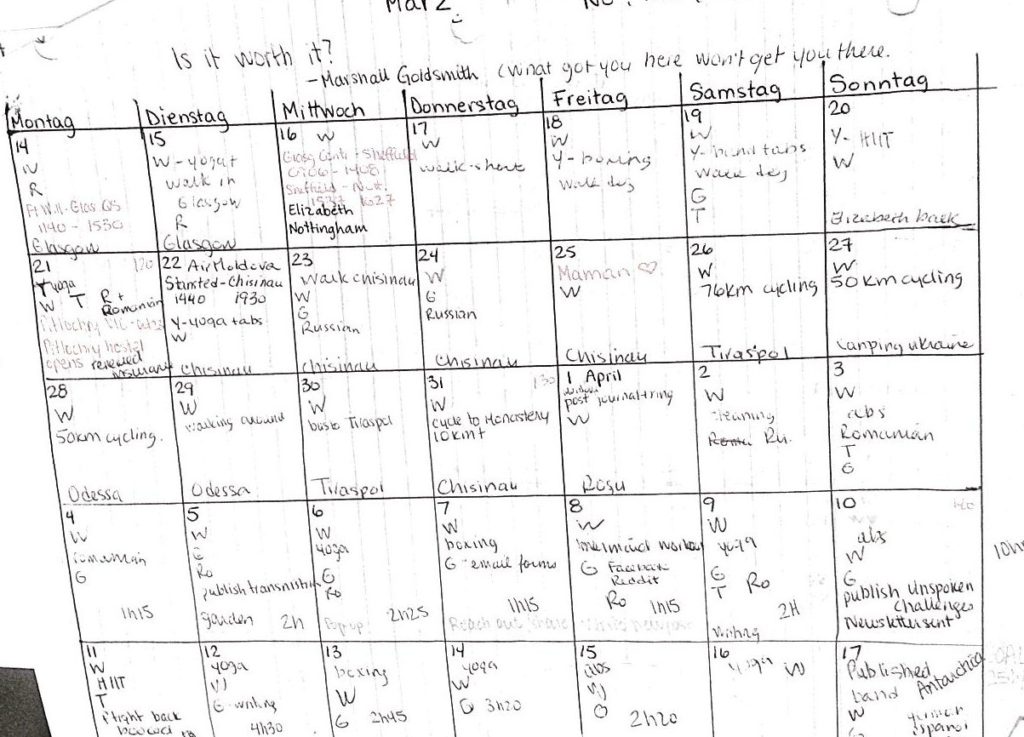 März
Is it worth it?
-Marshall Goldsmith (What got you here won't get you there.
Montag
Dienstag
Mittwoch
Donnerstag
Freitag
Samstag
Sonntag
14
W
R
1140 - 1530
Glasgow
15
W - yoga +
walk in
Glasgow
R
Glasgow
16 W
Sheffield
Sheffield - Nott.
1627
Elizabeth
Nottingham
17
W
walk - short
18
W
Y- boxing
Walk
19
W
Y-
Walk
G
T
20
Y- HIIT
W
Elizabeth back
21
Yoga
W T R +
Romanian
Pitlochry
Pitlochry hostel
opens renewed
insurance
22 AirMoldova
Stansted-Chisinau
1440 1930
Y-yoga + abs
W
Chisinau
23
Walk chisinau
W
G
Russian
Chisinau
24
W
G
Russian
Chisinau
25
Maman ♡
W
Chisinau
26
W
76km cycling
Tiraspol
27
W
50km cycling
Camping Ukraine
28
W
50km cycling.
Odessa
29
W
walking around
Odessa
30
W
bus to Tiraspol
Tiraspol
31
W
cycle to Monastery
10km+
Chisinau
1 April
post journal+ring
W
Rosu
2
W
cleaning
Ru.
3
W
abs
Romanian
T
G
4
W
romanian
G
1h15
5
W
G
Ro
publish transnistria
garden 2h
6
W
yoga
G
Ro
Popup 2h25
7
W
boxing
G - email forms
1h15
Reach out
8
W
G Facebook
Reddit
Ro 1h15
9
W
yoga
G
T Ro
2H
Writing
10
abs
W
G
publish Unspoken
Challenges
Newsletter sent
10h
11
W
HIIT
T
flight back
booked
12
yoga
W
G - writing
4h30
13
boxing
W
G 2h45
14
yoga
W
G 3h20
15
abs
W
G
2h20
16 yoga W
17
Published
Land Antarctica
W
G